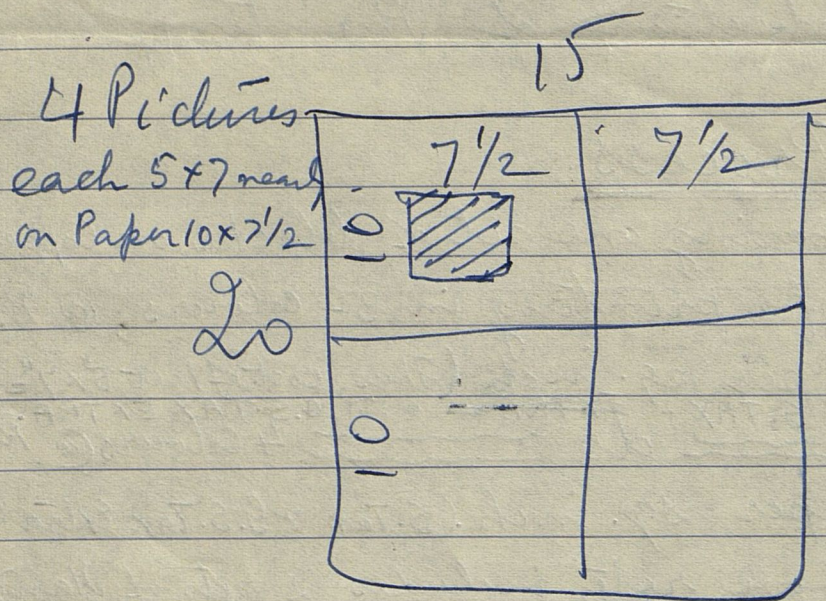 15
4 Pictures
each 5x7 nearly
on Paper 10 x 7 1/2
7 1/2
7 1/2
10
20
10